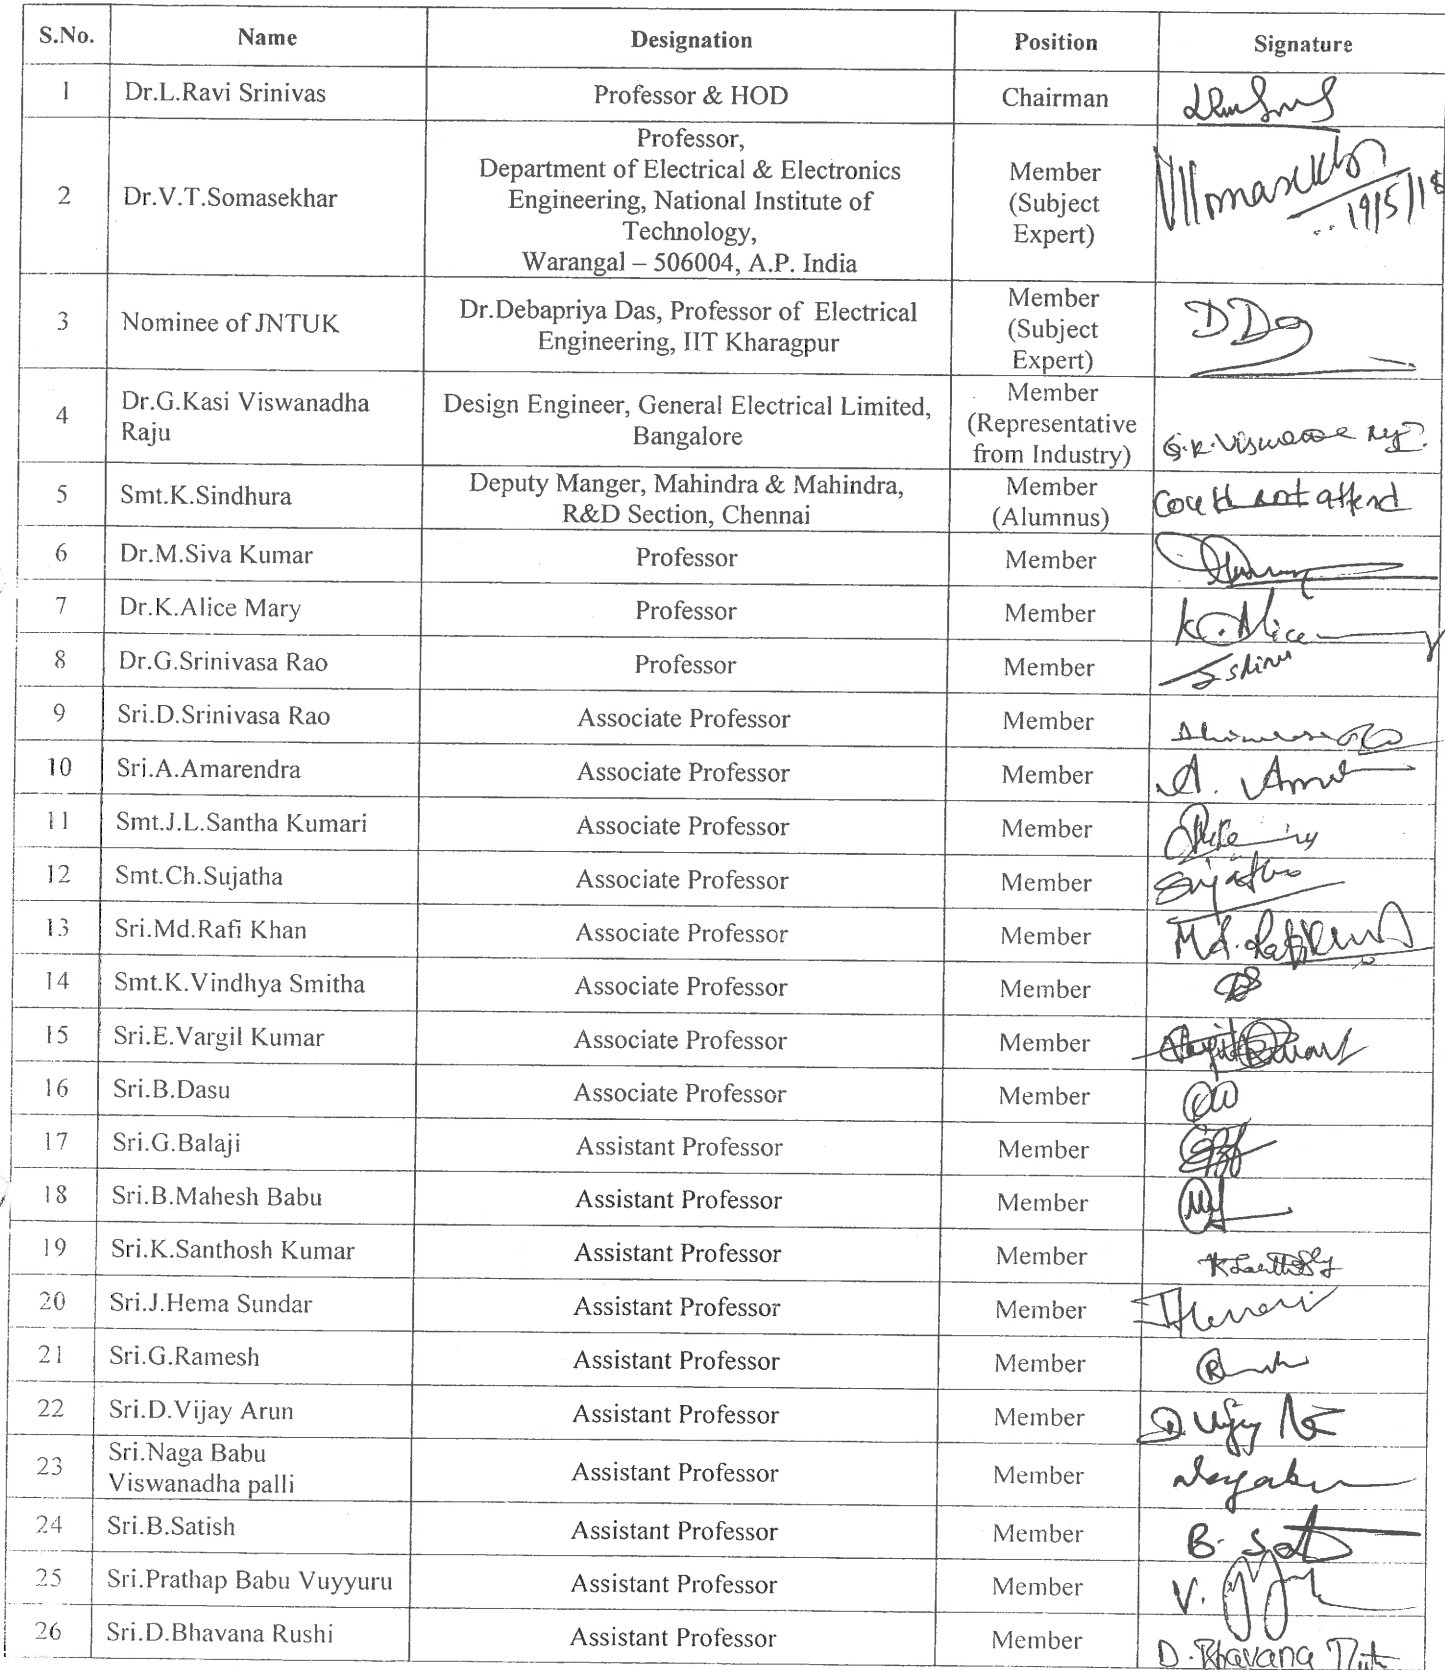 S.No. Name Designation Position Signature
1 Dr.L.Ravi Srinivas Professor & HOD Chairman
2 Dr.V.T.Somasekhar Professor,
Department of Electrical & Electronics
Engineering, National Institute of
Technology,
Warangal – 506004, A.P. India
Member
(Subject
Expert)
19/5/18
3 Nominee of JNTUK Dr.Debapriya Das, Professor of Electrical
Engineering, IIT Kharagpur
Member
(Subject
Expert)
4 Dr.G.Kasi Viswanadha
Raju
Design Engineer, General Electrical Limited,
Bangalore
Member
(Representative
from Industry)
5 Smt.K.Sindhura Deputy Manger, Mahindra & Mahindra,
R&D Section, Chennai
Member
(Alumnus)
Could not attend
6 Dr.M.Siva Kumar Professor Member
7 Dr.K.Alice Mary Professor Member K. Alice
8 Dr.G.Srinivasa Rao Professor Member
9 Sri.D.Srinivasa Rao Associate Professor Member
10 Sri.A.Amarendra Associate Professor Member
11 Smt.J.L.Santha Kumari Associate Professor Member
12 Smt.Ch.Sujatha Associate Professor Member Sujatha
13 Sri.Md.Rafi Khan Associate Professor Member
14 Smt.K.Vindhya Smitha Associate Professor Member
15 Sri.E.Vargil Kumar Associate Professor Member
16 Sri.B.Dasu Associate Professor Member
17 Sri.G.Balaji Assistant Professor Member
18 Sri.B.Mahesh Babu Assistant Professor Member
19 Sri.K.Santhosh Kumar Assistant Professor Member
20 Sri.J.Hema Sundar Assistant Professor Member
21 Sri.G.Ramesh Assistant Professor Member
22 Sri.D.Vijay Arun Assistant Professor Member D. Vijay
23 Sri.Naga Babu
Viswanadha palli
Assistant Professor Member
24 Sri.B.Satish Assistant Professor Member
25 Sri.Prathap Babu Vuyyuru Assistant Professor Member
26 Sri.D.Bhavana Rushi Assistant Professor Member D. Bhavana